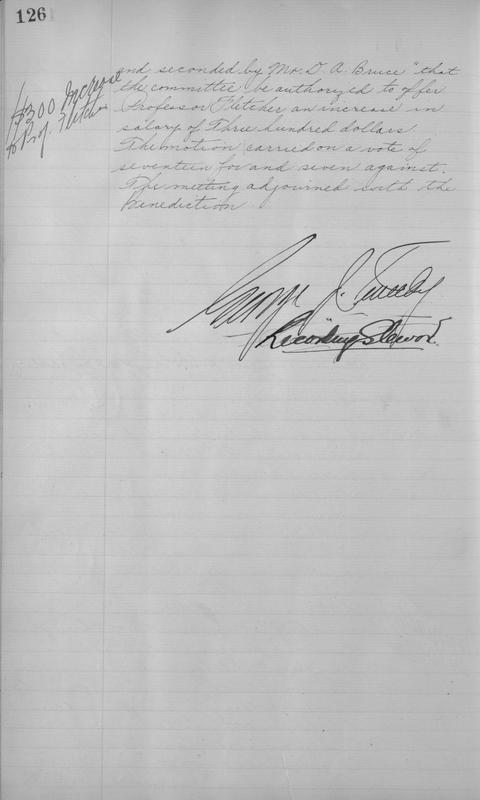 126
$300 Increase
to Prof. Fletcher
and seconded by Mr. D. A. Bruce "that
the committee be authorized to offer
Professor Fletcher an increase in
salary of Three hundred dollars.
The motion carried on a vote of
seventeen for and seven against.
The meeting adjourned with the
Benediction.
George J. Tweedy
Recording Steward.